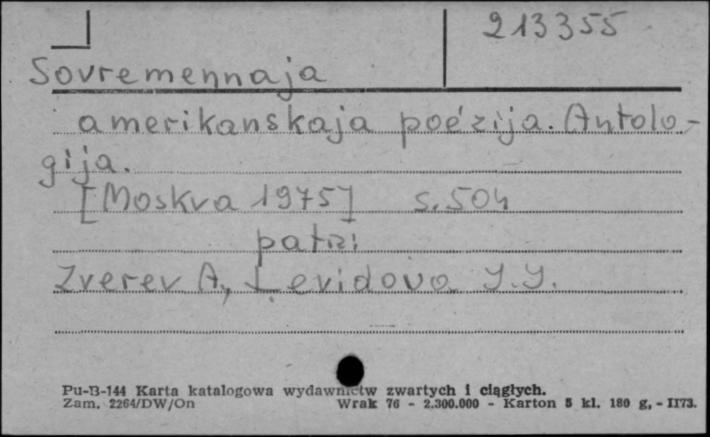 213355
Sovremennaja
amerikanskaja poézija. Antolo-
gija.
[Moskva 1975] s. 504
patrz:
Zverev A., Levidova I. I.
Pu-B-144 Karta katalogowa wydawnictw zwartych i ciągłych.
Zam. 2264/DW/On Wrak 76 - 2.300.000 - Karton 5 kl. 180 g. - II73.